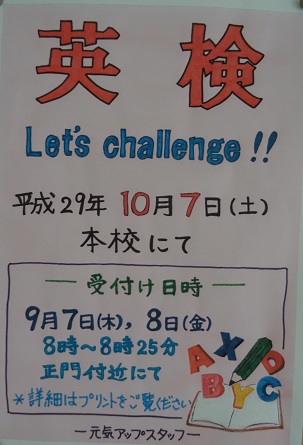 英検
Let's challenge!!
平成29年 10月 7日(土)
本校にて
受付け日時
9月7日(木), 8日(金)
8時～8時25分
正門付近にて
*詳細はプリントをご覧ください
AXD
BYC
ー元気アップスタッフー